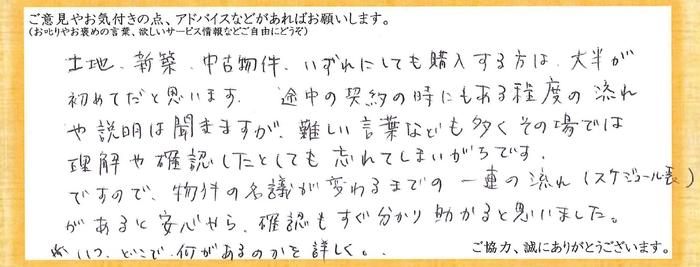 ご意見やお気付きの点、アドバイスなどがあればお願いします。
(お叱りやお褒めの言葉、欲しいサービス情報などご自由にどうぞ)
土地、新築、中古物件、いずれにしても購入する方は、大半が
初めてだと思います。 途中の契約の時にもある程度の流れ
や説明は聞きますが、難しい言葉なども多くその場では
理解や確認したとしても忘れてしまいがちです。
ですので、物件の名議が変わるまでの一連の流れ(スケジュール表)
があると安心やら、確認もすぐ分かり助かると思いました。
いつ、どこで、何があるのかを詳しく。
ご協力、誠にありがとうございます。